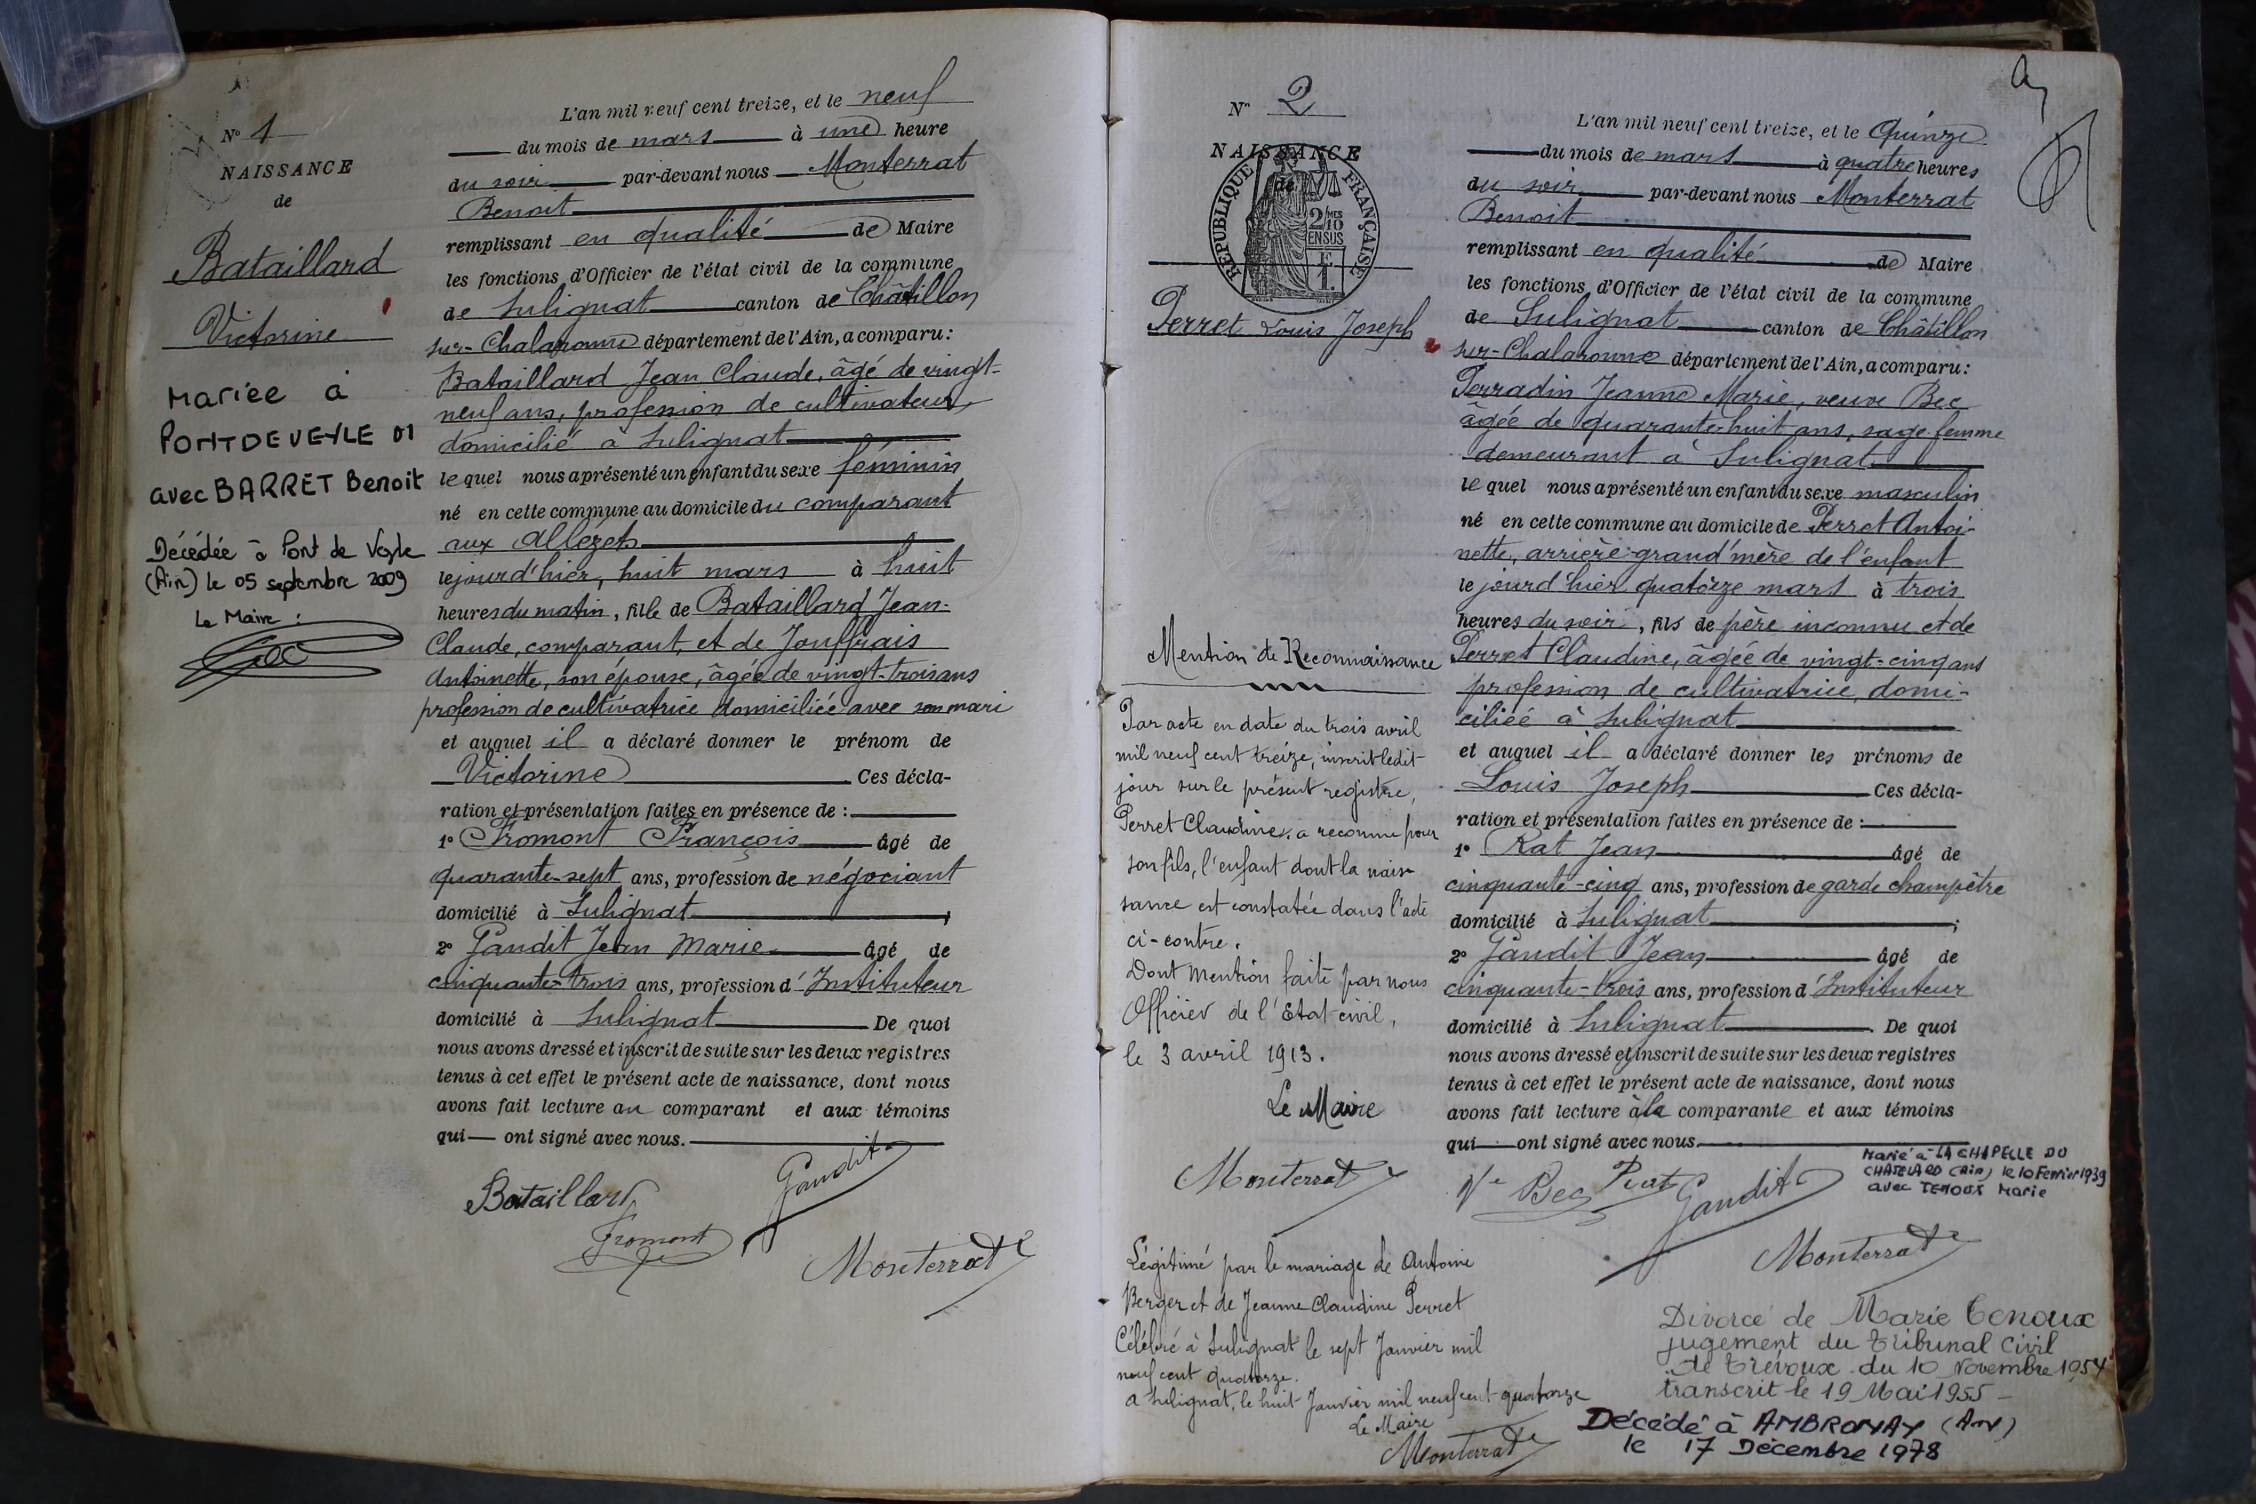 N° 1
NAISSANCE
de
Bataillard
Victorine
Mariée à
PONT DE VEYLE 01
avec BARRET Benoit
Décédée à Pont de Veyle
(Ain) le 05 septembre 2009
Le Maire :
L'an mil neuf cent treize, et le neuf
du mois de mars à une heure
du soir par-devant nous Monterrat
Benoit
remplissant en qualité de Maire
les fonctions d'Officier de l'état civil de la commune
de Sulignat canton de Châtillon
sur-Chalaronne département de l'Ain, a comparu :
Bataillard Jean Claude, âgé de vingt-
neuf ans, profession de cultivateur,
domicilié à Sulignat
le quel nous a présenté un enfant du sexe féminin
né en cette commune au domicile du comparant
aux Allézets
le jour d'hier, huit mars à huit
heures du matin, fille de Bataillard Jean-
Claude, comparant, et de Jouffrais
Antoinette, son épouse, âgée de vingt-trois ans
profession de cultivatrice domiciliée avec son mari
et auquel il a déclaré donner le prénom de
Victorine Ces décla-
ration et présentation faites en présence de :
1° Fromont François âgé de
quarante-sept ans, profession de négociant
domicilié à Sulignat ;
2° Gaudit Jean Marie âgé de
cinquante-trois ans, profession d'Instituteur
domicilié à Sulignat De quoi
nous avons dressé et inscrit de suite sur les deux registres
tenus à cet effet le présent acte de naissance, dont nous
avons fait lecture au comparant et aux témoins
qui — ont signé avec nous.
Bataillard
Gaudit
Fromont
Monterrat
N° 2
NAISSANCE
de
REPUBLIQUE FRANÇAISE
2/10 MES
EN SUS
E
1.
Perret Louis Joseph
Mention de Reconnaissance
Par acte en date du trois avril
mil neuf cent treize, inscrit ledit
jour sur le présent registre,
Perret Claudine, a reconnu pour
son fils, l'enfant dont la nais-
sance est constatée dans l'acte
ci-contre.
Dont Mention faite par nous
Officier de l'Etat civil,
le 3 avril 1913.
Le Maire
Monterrat
Légitimé par le mariage de Antoine
Berger et de Jeanne Claudine Perret
Célébré à Sulignat le sept Janvier mil
neuf cent quatorze.
A Sulignat, le huit Janvier mil neuf cent quatorze
Le Maire
Monterrat
L'an mil neuf cent treize, et le Quinze
du mois de mars à quatre heures
du soir par-devant nous Monterrat
Benoit
remplissant en qualité de Maire
les fonctions d'Officier de l'état civil de la commune
de Sulignat canton de Châtillon
sur-Chalaronne département de l'Ain, a comparu :
Perradin Jeanne Marie, veuve Bec
âgée de quarante-huit ans, sage-femme
demeurant à Sulignat
le quel nous a présenté un enfant du sexe masculin
né en cette commune au domicile de Perret Antoi-
nette, arrière-grand'mère de l'enfant
le jour d'hier quatorze mars à trois
heures du soir, fils de père inconnu et de
Perret Claudine, âgée de vingt-cinq ans
profession de cultivatrice, domi-
ciliée à Sulignat
et auquel il a déclaré donner les prénoms de
Louis Joseph Ces décla-
ration et présentation faites en présence de :
1° Rat Jean âgé de
cinquante-cinq ans, profession de garde champêtre
domicilié à Sulignat ;
2° Gaudit Jean âgé de
cinquante-trois ans, profession d'Instituteur
domicilié à Sulignat. De quoi
nous avons dressé et inscrit de suite sur les deux registres
tenus à cet effet le présent acte de naissance, dont nous
avons fait lecture à la comparante et aux témoins
qui — ont signé avec nous.
Marié à LA CHAPELLE DU
CHATELARD (Ain) le 10 Fevrier 1939
avec TENOUX Marie
Ve Bec Rat Gaudit
Monterrat
Divorcé de Marie Tenoux
jugement du Tribunal Civil
de Trévoux du 10 Novembre 1954
transcrit le 19 Mai 1955 -
Décédé à AMBRONAY (Ain)
le 17 Décembre 1978